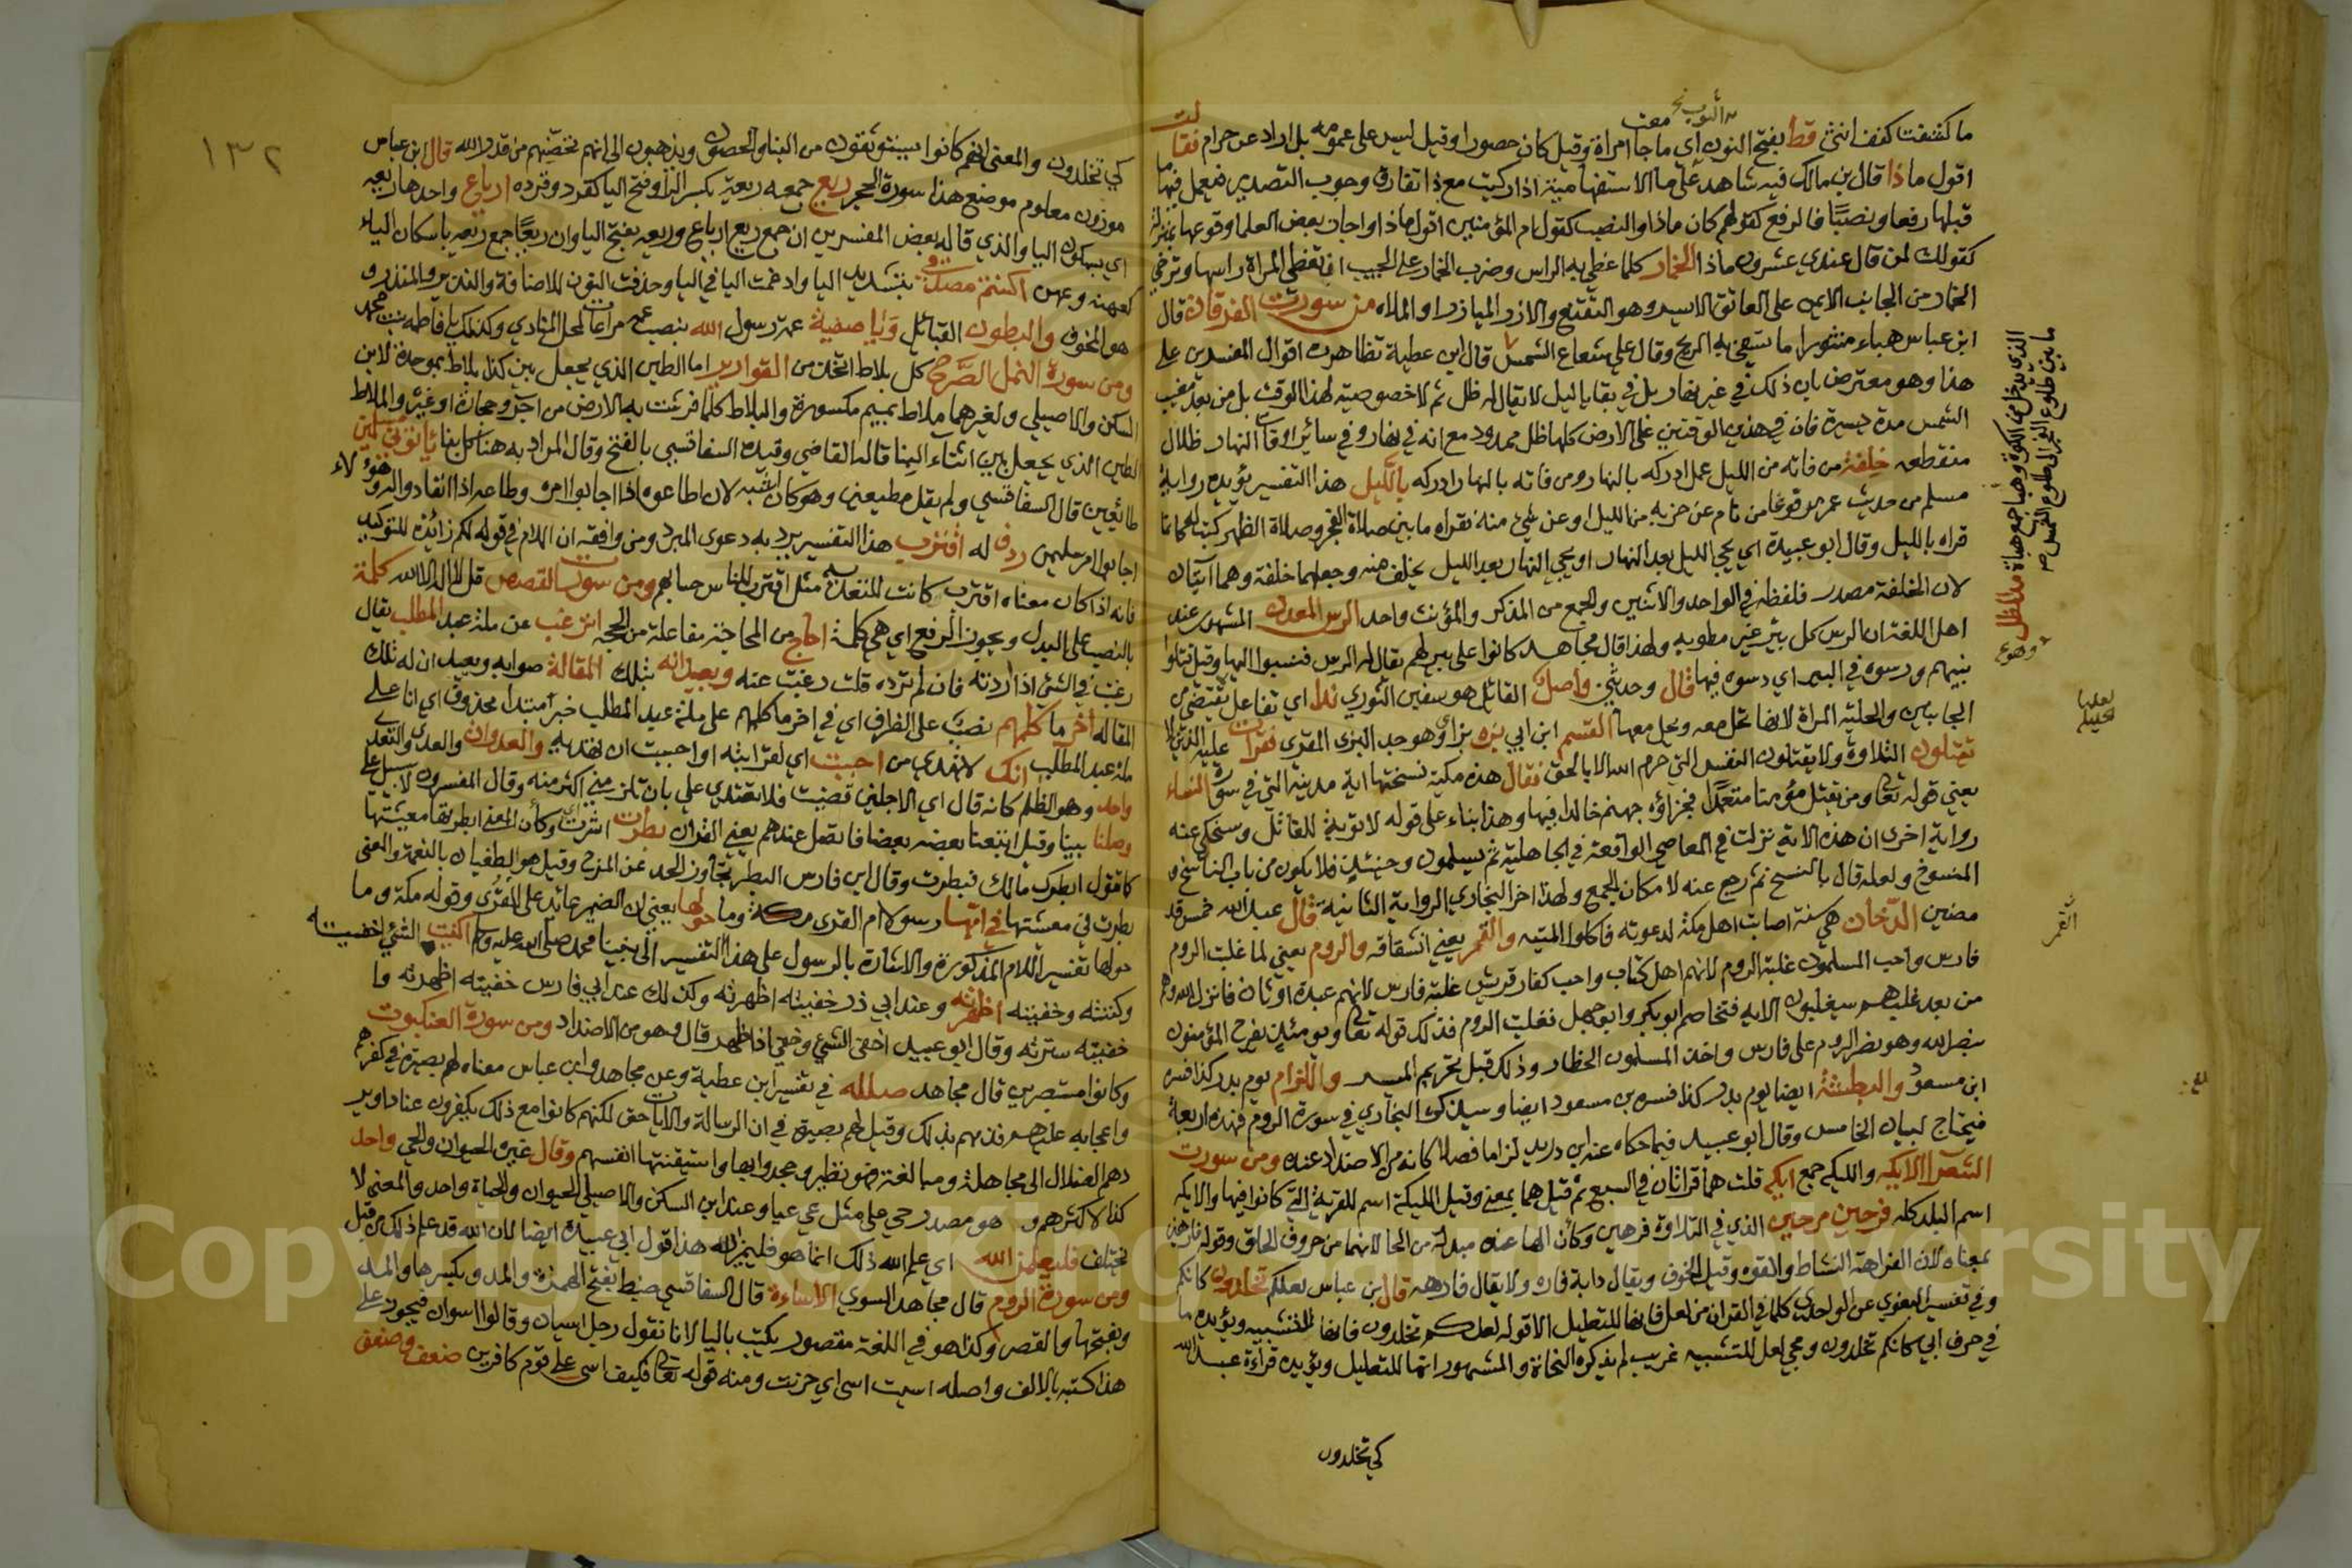 ما كشفت كنف انثى قط بفتح النون اي ما جامعت امراة وقيل كان حصورا وقيل ليس على عمومه بل اراد عن حرام فقالت
اقول ماذا قال بن مالك فيه شاهد على ما الاستفهامية اذا ركبت مع ذا تفارق وجوب التصدير فيعمل فيها ما
قبلها رفعا ونصبا فالرفع كقولهم كان ماذا والنصب كقول ام المؤمنين اقول ماذا واجاز بعض العلما وقوعها تمييزا
كقولك لمن قال عندي عشرون ماذا الخمار كلما غطي به الراس وضرب الخمار على الجيب ان تغطي المراة راسها وترمي
الخمار من الجانب الايمن على العاتق الايسر وهو التقنع والازر الميازر والملاه من سورت الفرقان قال
ابن عباس هباء منثورا ما تسفي به الريح وقال علي شعاع الشمس قال ابن عطية تظاهرت اقوال المفسرين على
هذا وهو معترض بان ذلك في غير نهار بل في بقايا ليل لا يقال له ظل ثم لا خصوصية لهذا الوقت بل من بعد مغيب
الشمس مدة يسيرة فان في هذين الوقتين على الارض كلها ظل ممدود مع انه في نهار وفي سائر اوقات النهار ظلال
منقطعه خلفة من فاته من الليل عمل ادركه بالنهار ومن فاته بالنهار ادركه بالليل هذا التفسير يؤيده رواية
مسلم من حديث عمر مرفوعا من نام عن حزبه من الليل او عن شيء منه فقراه ما بين صلاة الفجر وصلاة الظهر كتب له كانما
قراه بالليل وقال ابو عبيدة اي يجي الليل بعد النهار او يجي النهار بعد الليل يخلف منه وجعلهما خلفة وهما آيتان
لان الخلفة مصدر فلفظه في الواحد والاثنين والجمع من المذكر والمؤنث واحد الرس المعدن المشهور عند
اهل اللغة ان الرس كل بير غير مطويه ولهذا قال مجاهد كانوا على بير لهم يقال له الرس فنسبوا اليها وقيل قتلوا
نبيهم ورسوه في البير اي دسوه فيها قال وحدثني واصل القائل هو سفين الثوري ندا اي تفاعل يقتضي من
الجانبين والحليلة المراة لانها تحل معه ويحل معها القسم ابن ابي بزه بزاي وهو جد البزي المقري فقرات عليه الذين لا
تقتلون التلاوة ولا يقتلون النفس التي حرم الله الا بالحق فقال هذه مكية نسختها اية مدينة التي في سورة النساء
يعني قوله تعالى ومن يقتل مؤمنا متعمدا فجزاؤه جهنم خالدا فيها وهذا بناء على قوله لا توبة للقاتل وسنحكي عنه
رواية اخرى ان هذه الاية نزلت في المعاصي الواقعة في الجاهلية ثم يسلمون وحينئذ فلا يكون من باب الناسخ و
المنسوخ ولعله قال بالنسخ ثم رجع عنه لا مكان للجمع ولهذا اخر البخاري الرواية الثانية قال عبد الله خمس قد
مضين الدخان هي سنة اصابت اهل مكة لدعوته فاكلوا الميتة والقمر يعني انشقاقه والروم يعني لما غلبت الروم
فارس واحب المسلمون غلبة الروم لانهم اهل كتاب واحب كفار قريش غلبة فارس لانهم عبدة اوثان فانزل الله وهم
من بعد غلبهم سيغلبون الايه فتخاصم ابو بكر وابو جهل فغلبت الروم فذلك قوله تعالى ويومئذ يفرح المؤمنون
بنصر الله وهو نصر الروم على فارس واخذ المسلمون الخطار وذلك قبل تحريم الميسر واللزام يوم بدر كذا فسره
ابن مسعود والبطشة ايضا يوم بدر كذا فسره بن مسعود ايضا وسيذكره البخاري في سورة الروم فهذه اربعة
فيحتاج لبيان الخامس وقال ابو عبيد فيما حكاه عنه ابن دريد لزاما فصلا كانه من الاضداد عنده ومن سورت
الشعرا الايكه والليكه جمع ايكه قلت هما قراتان في السبع ثم قيل هما بمعنى وقيل الليكة اسم للقرية التي كانوا فيها والايكه
اسم البلد كله فرحين مرحين الذي في التلاوة فرهين وكأن الها عنده مبدلة من الحا لانهما من حروف الحلق وقوله فارهين
بمعناه لان الفراهة النشاط والقوه وقيل الخوف ويقال دابة فاره ولا يقال فارهه قال بن عباس لعلكم تخلدون كانكم
وفي تفسير البغوي عن الواحدي كلما في القران من لعل فانها للتعليل الا قوله لعلكم تخلدون فانها للتشبيه ويؤيده ما
في حرف ابي كانكم تخلدون ومجي لعل للتشبيه غريب لم يذكره النحاة والمشهور انها للتعليل ويؤيده قراءة عبد الله
كي تخلدون
الذي يدخل من الكوة وهباء جمع هباة مد الظل
ما بين طلوع الفجر الى طلوع الشمس
القمر
١٣٢
كي تخلدون والمعنى انهم كانوا يستوثقون من البنا والحصون ويذهبون الى انهم تحصنهم من قدر الله قال ابن عباس
موزون معلوم موضع هذا سورة الحجر ريع جمعه ريعة بكسر الرا وفتح اليا كقرد وقرده ارياع واحدها ريعه
اي بسكون اليا والذي قاله بعض المفسرين ان جمع ريع ارياع وريعه بفتح اليا وان ريعا جمع ريعه باسكان الياء
كعهنة وعهن اكنتم مصدقي بتشديد اليا وادغمت اليا في اليا وحذفت النون للاضافة والنذير والمنذر و
هو المخوف والبطون القبائل ويا صفية عمة رسول الله بنصب عمة مراعات لمحل المنادي وكذلك يا فاطمه بنت محمد
ومن سورة النمل الصرح كل بلاط اتخذ من القوارير اما الطين الذي يجعل بين كذا بلاط بموحدة لابن
السكن والاصيلي ولغيرهما ملاط بميم مكسورة والبلاط كلما فرشت به الارض من اجر وحجارة او غيره والملاط
الطين الذي يجعل بين اثناء البنا قاله القاضي وقيده السفاقسي بالفتح وقال المراد به هنا كل بنا ياتوني مسلمين
طائعين قال السفاقسي ولم يقل مطيعين وهو كان اشبه لان اطاعوه اذا اجابوا امره وطاعه اذا انقاد واله وهؤلاء
اجابوا امر سليمن ردف له اقترب هذا التفسير يرد به دعوى المبرد ومن وافقه ان اللام في قوله لكم زائدة للتوكيد
فانه اذا كان معناه اقترب كانت للتعديه مثل اقترب للناس حسابهم ومن سورت القصص قل لا اله الا الله كلمة
بالنصب على البدل ويجوز الرفع اي هي كلمة احاج من المحاجة مفاعلة من الحجه اترغب عن ملة عبد المطلب يقال
رغبت في الشيئ اذا اردته فان لم ترده قلت رغبت عنه ويعيدانه بتلك المقالة صوابه ويعيد ان له تلك
المقاله اخر ما كلمهم نصب على الظرف اي في اخر ما كلمهم على ملة عبد المطلب خبر مبتدا محذوف اي انا على
ملة عبد المطلب انك لا تهدي من احببت اي لقرابته او احببت ان يهتديه والعدوان والعدى والتعدي
واحد وهو الظلم كانه قال اي الاجلين قضيت فلا تعتدي علي بان تلزمني اكثر منه وقال المفسرون لا سبيل علي
وصلنا بينا وقيل اتبعنا بعضه بعضا فاتصل عندهم يعني القران بطرت اشرت وكأن المعنى ابطرتها معيشتها
كما تقول ابطرك مالك فبطرت وقال ابن فارس البطر تجاوز الحد عن المزح وقيل هو الطغيان بالنعمة والمعنى
بطرت في معيشتها في امها رسولا ام القرى مكة وما حولها يعني ان الضمير عائد على القرى وقوله مكة وما
حولها تفسير للام المذكورة والاشارة بالرسول على هذا التفسير الى نبينا محمد صلى الله عليه وسلم اكنيت الشيئ اخفيته
وكننته وخفيته اظهرته وعند ابي ذر خفيته اظهرته وكذلك عند ابي فارس خفيته اظهرته و
خفيته سترته وقال ابو عبيد اخفى الشيئ وخفي اذا ظهر قال وهو من الاضداد ومن سورة العنكبوت
وكانوا مستبصرين قال مجاهد ضلله في تفسير ابن عطية وعن مجاهد وابن عباس معناه لهم بصيرة في كفرهم
واعجابه عليهم فذمهم بذلك وقيل لهم بصيرة في ان الرسالة والايات حق لكنهم كانوا مع ذلك يكفرون عنادا وير
دهم الضلال الى مجاهلة ومبالغة فهو نظير وجحدوا بها واستيقنتها انفسهم وقال غيره الحيوان والحي واحد
كذا لاكثرهم وهو مصدر حي على مثل عي عيا وعند ابن السكن والاصيلي الحيوان والحياة واحد والمعنى لا
يختلف فليعلمن الله اي علم الله ذلك انما هو فليميز الله هذا قول ابي عبيدة ايضا لان الله قد علم ذلك من قبل
ومن سورة الروم قال مجاهد السوي الاساءة قال السفاقسي ضبط بفتح الهمزة والمد وبكسرها والمد
وبفتحها والقصر وكذا هو في اللغة مقصور يكتب باليا لانا نقول رجل اسيان وقالوا اسوان فيجوز على
هذا كتبه بالالف واصله اسيت اسى اي حزنت ومنه قوله تعالى فكيف اسى على قوم كافرين ضعف وضعف